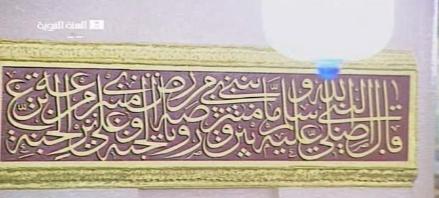 السنة النبوية
قال النبي صلى الله عليه وسلم ما بين بيتي ومنبري روضة من رياض الجنة ومنبري على ترعة من ترع الجنة